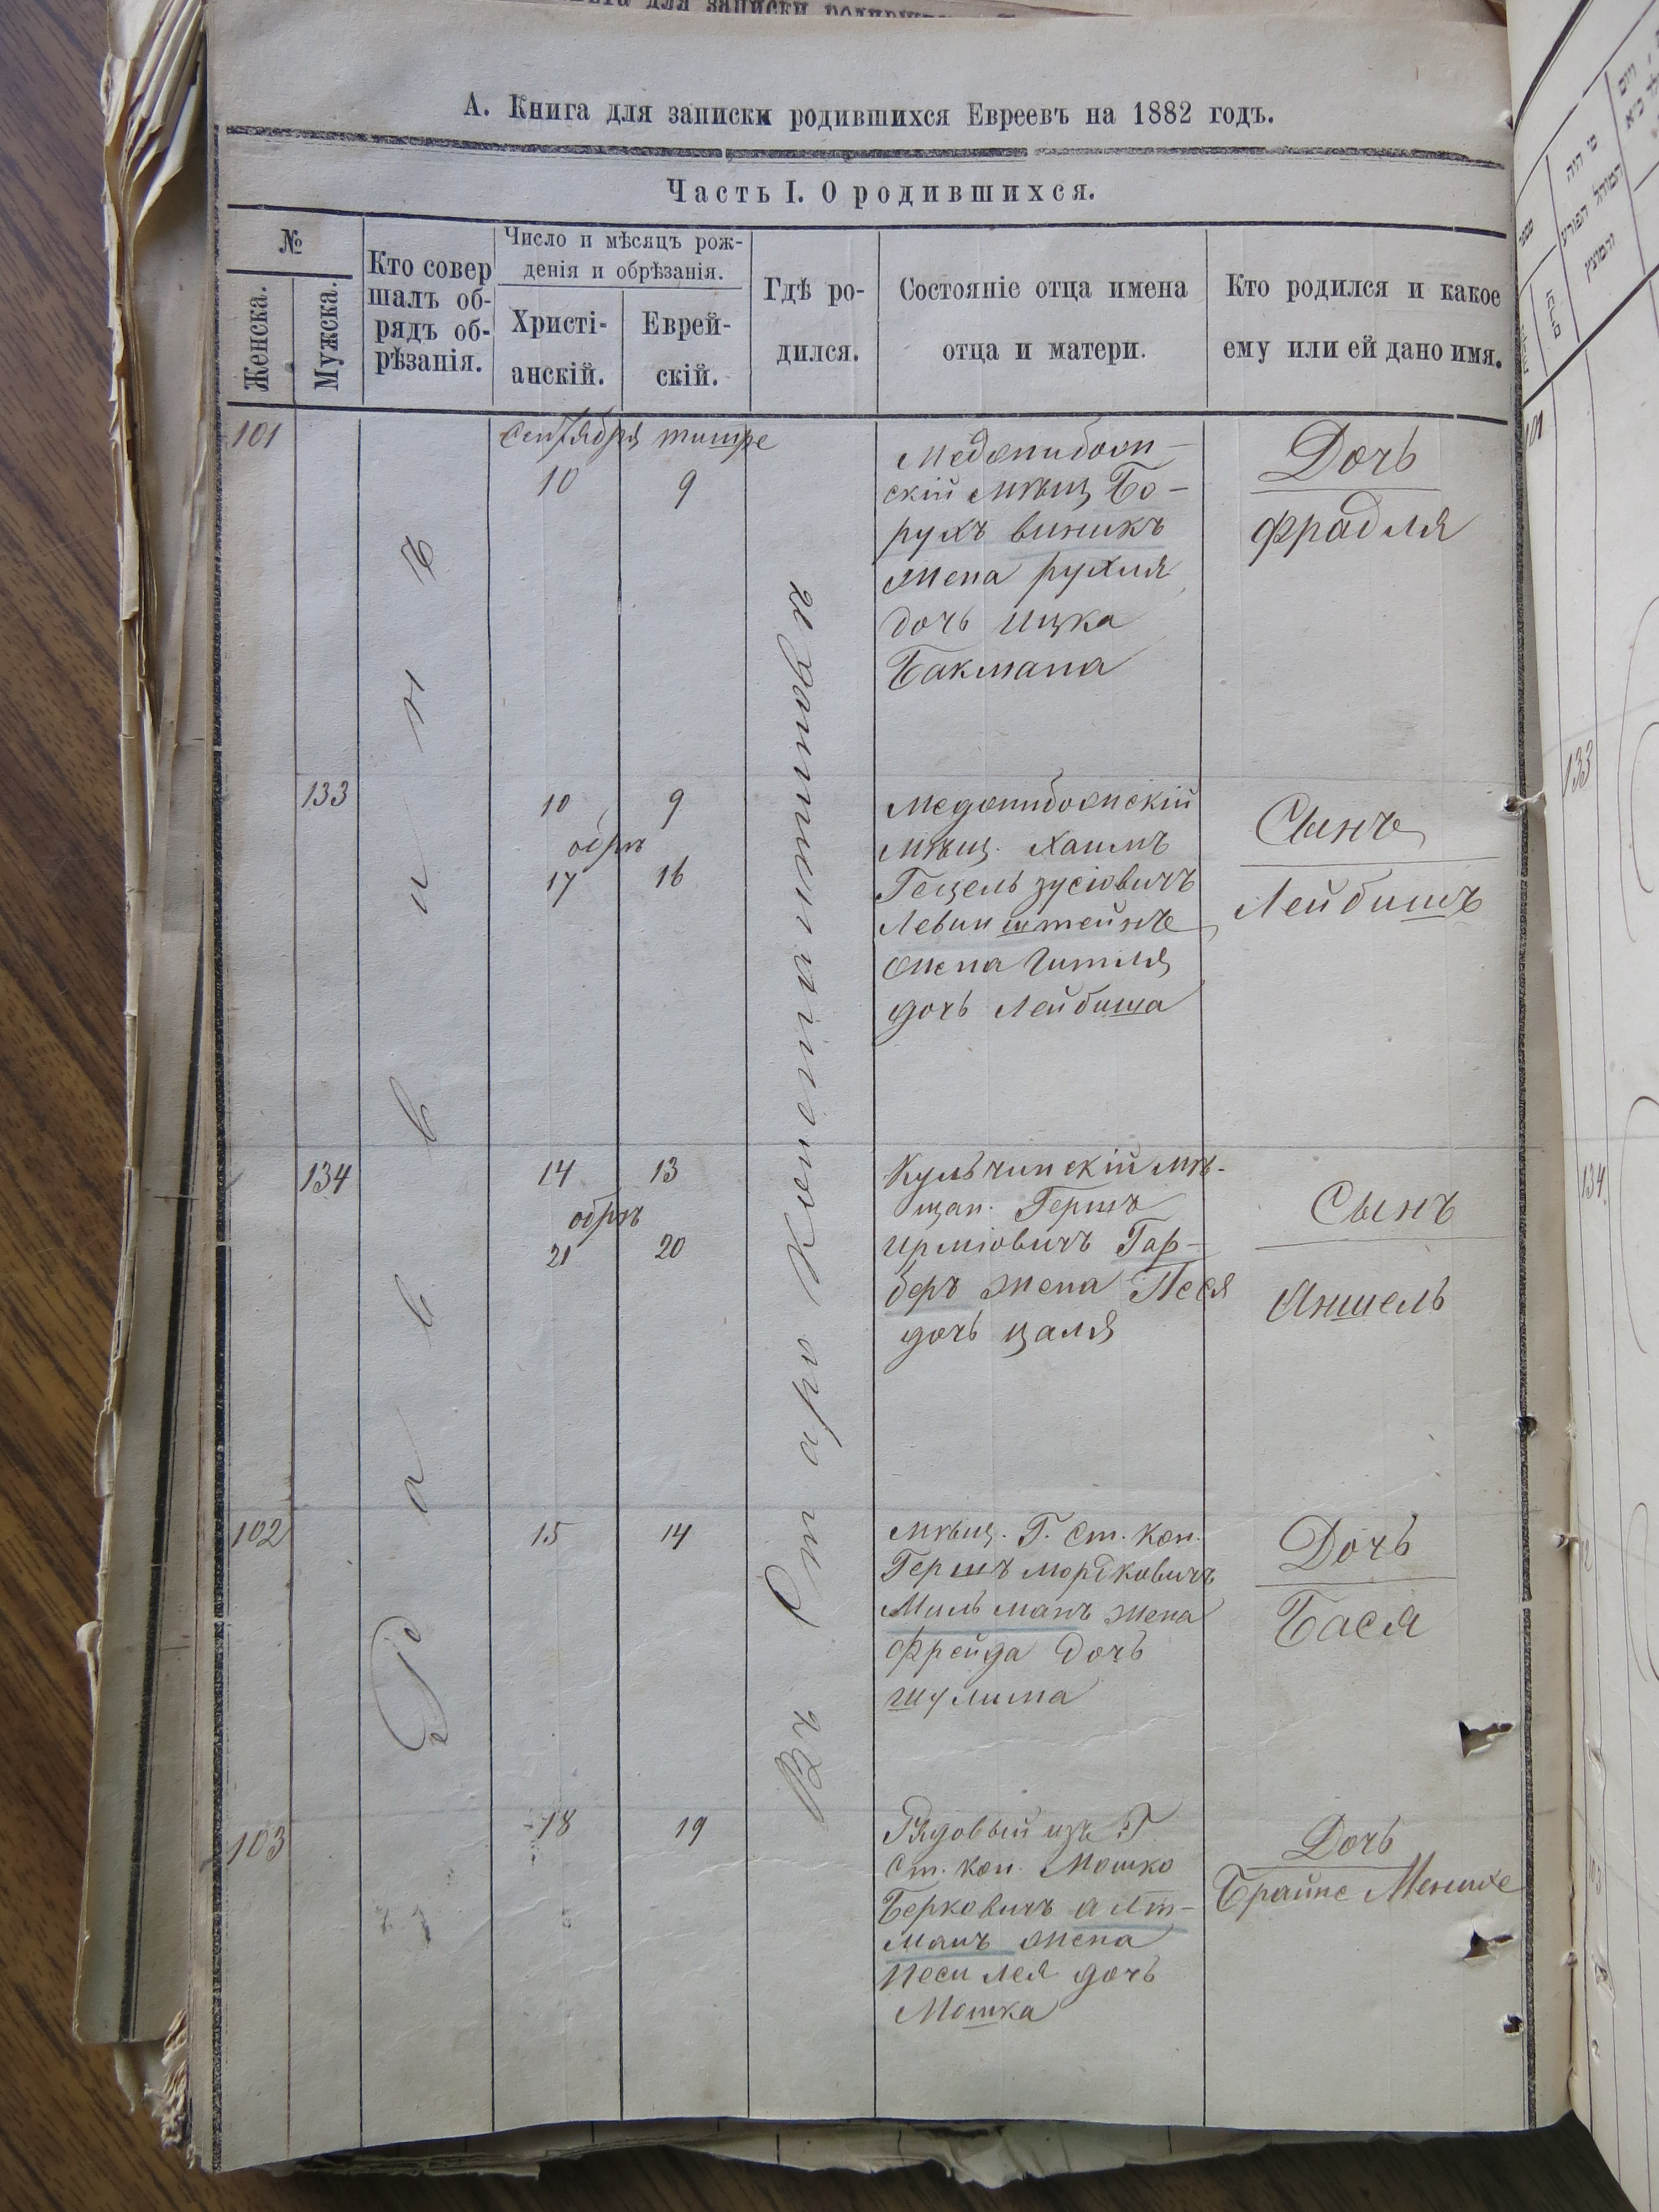 А. Книга для записки родившихся Евреевъ на 1882 годъ.
Часть I. О родившихся.
№
Женска.
Мужска.
Кто совер
шалъ об-
рядъ об-
рѣзанія.
Число и мѣсяцъ рож-
денія и обрѣзанія.
Христі-
анскій.
Еврей-
скій.
Гдѣ ро-
дился.
Состояніе отца имена
отца и матери.
Кто родился и какое
ему или ей дано имя.
Раввинъ
Въ Старо Константиновѣ
101
Сентября тишре
10 9
скій мѣщ Бо-
рухъ виникъ
жена рухля
дочь Ицка
Бакмана
Дочь
Фрадля
133
10 9
обрѣ
17 16
мѣщ. Хаимъ
Гецель зусіовичъ
Левинштейнъ
жена Гитля
дочь Лейбиша
Сынъ
Лейбишъ
134
14 13
обрѣ
21 20
Кульчинскій мѣ-
щан. Гершъ
Ирміовичъ Гар-
беръ жена Песя
дочь цаля
Сынъ
Аншель
102
15 14
мѣщ. Г. Ст. Кон.
Гершъ мордковичъ
Мильманъ жена
Фрейда дочь
шулима
Дочь
Бася
103
18 19
Рядовый изъ Г.
Ст. Кон. Мошко
Берковичъ алт-
манъ жена
Песи лея дочь
Мошка
Дочь
Брайне Менихе
101
133
134